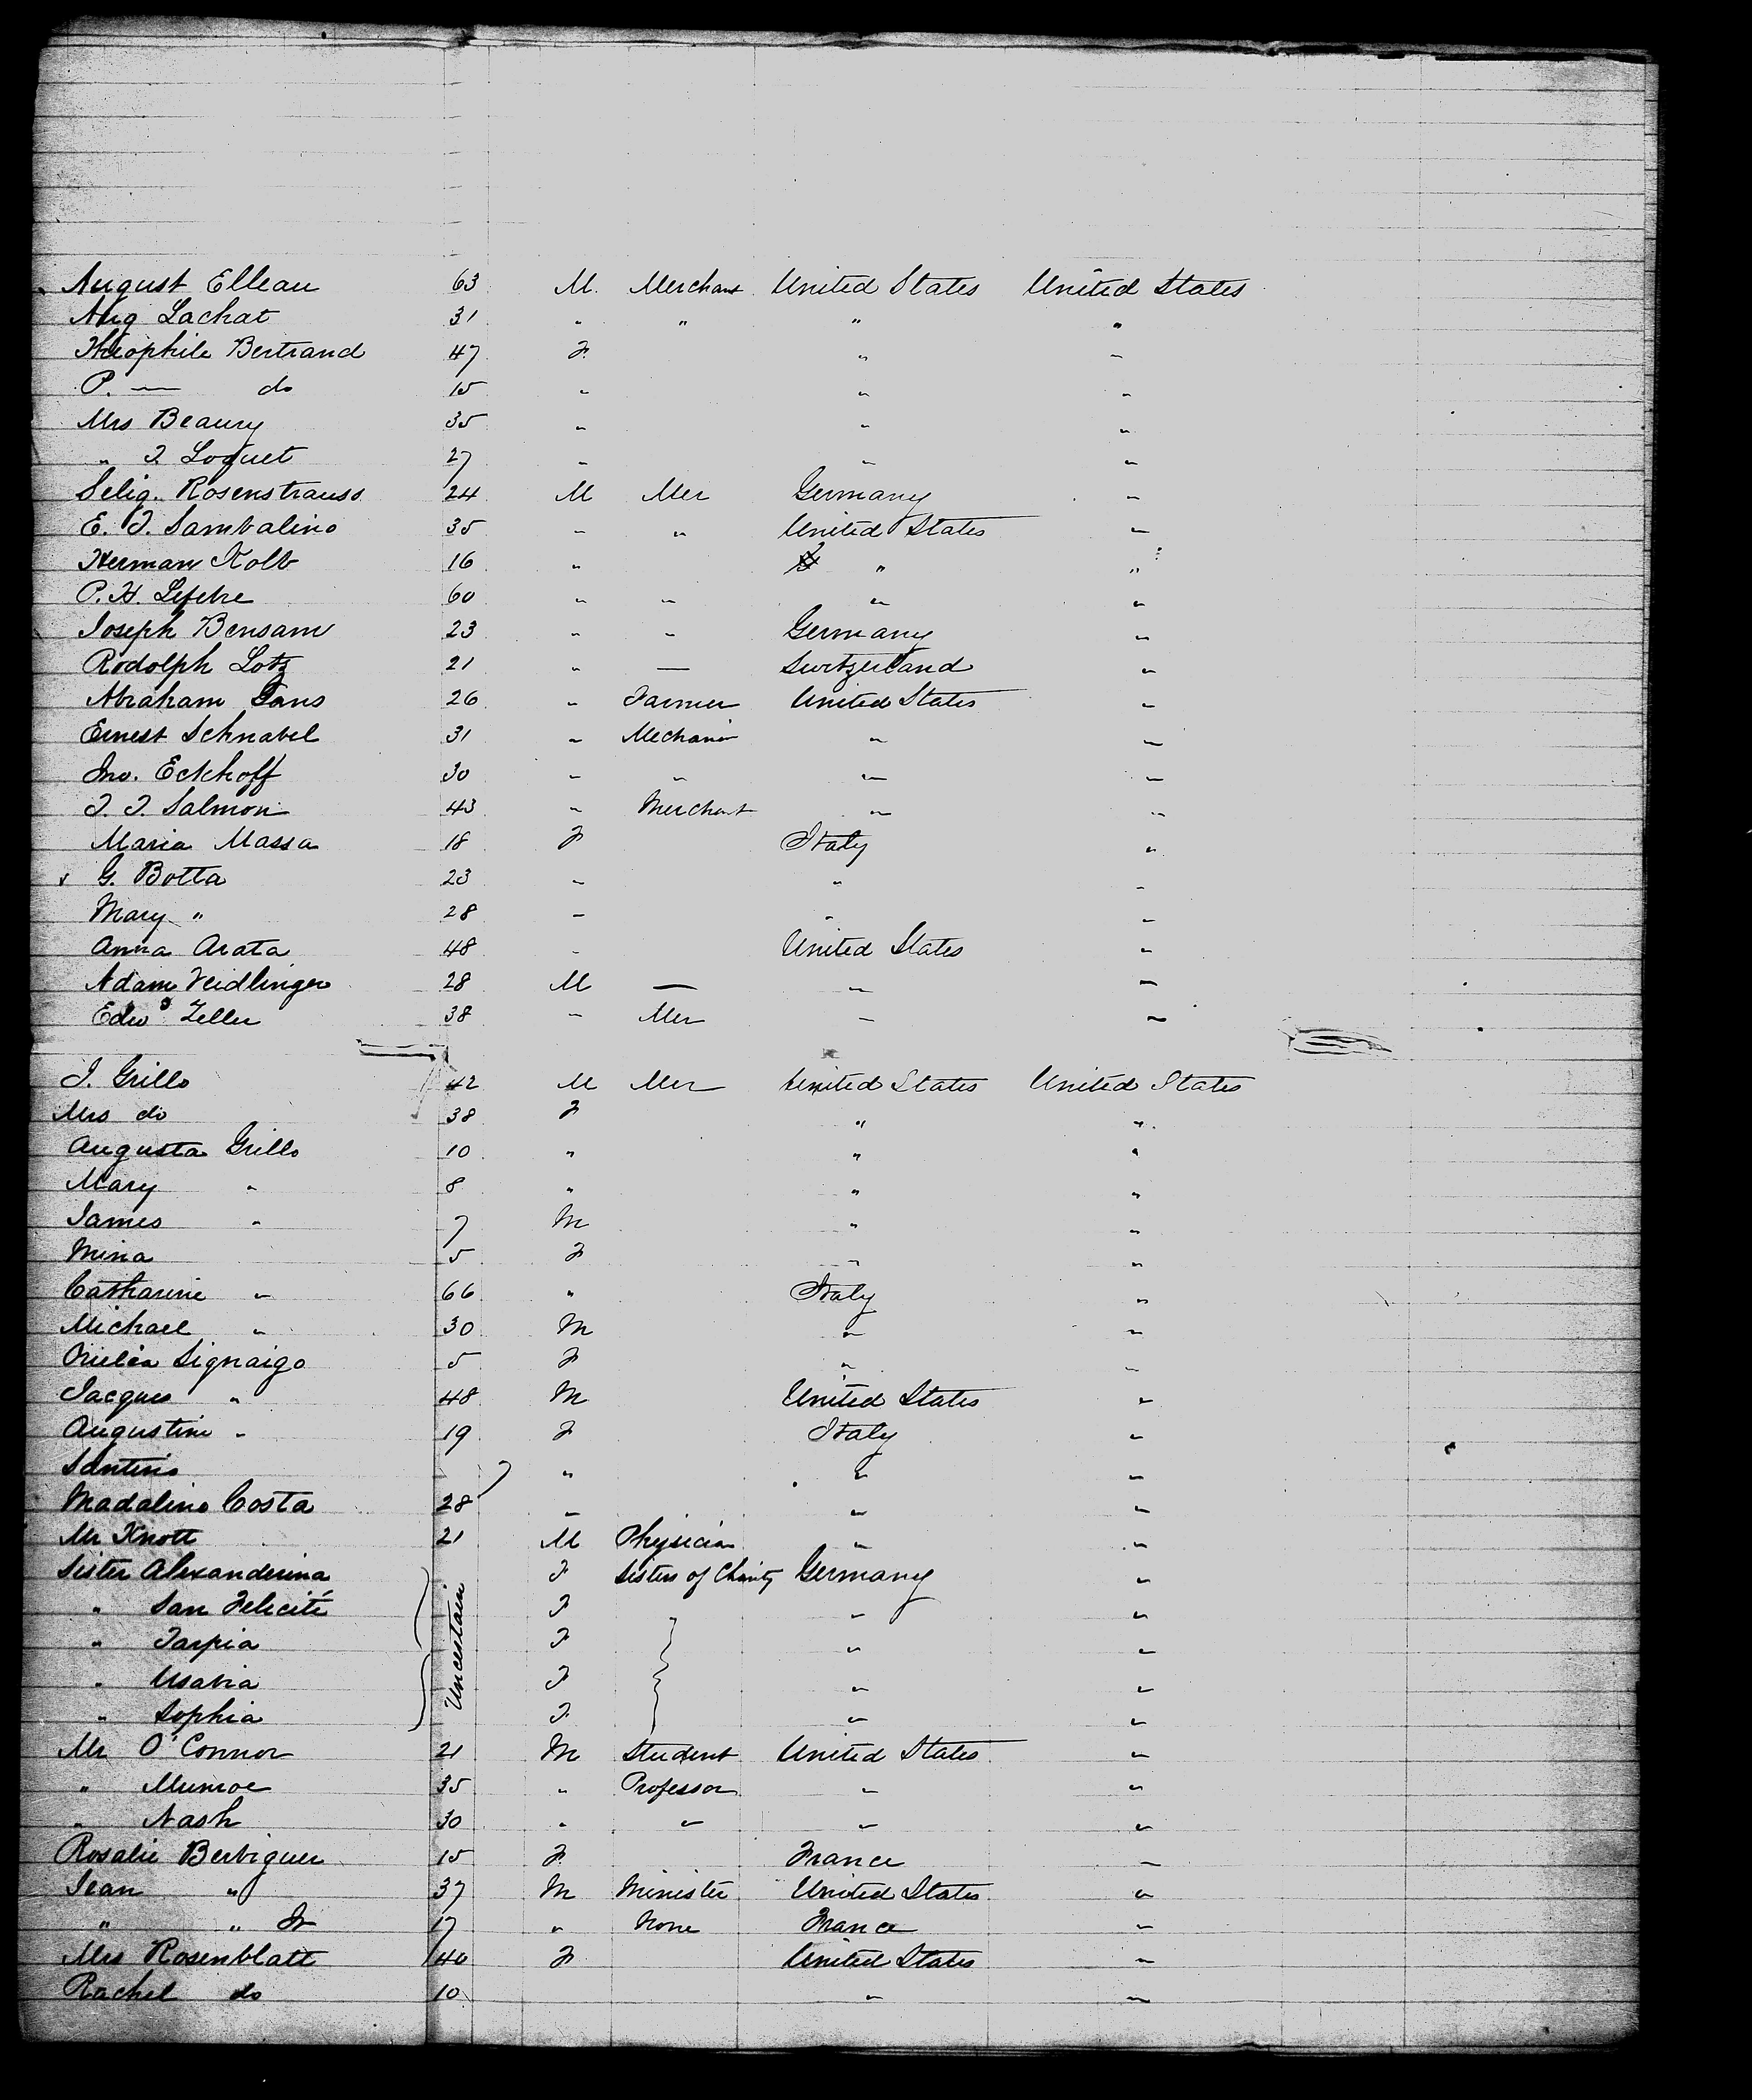 August Elleau 63 M. Merchant United States United States
Aug Lachat 31 " " " "
Theophile Bertrand 47 F. " "
P. — do 15 " " "
Mrs Beaury 35 " " "
" J. Loquet 27 " " "
Selig. Rosenstrauss 24 M Mer Germany "
E. J. Sambalino 35 " " United States "
Herman Kolb 16 " " "
P. H. Lefebre 60 " " " "
Joseph Bensam 23 " " Germany "
Rodolph Lotz 21 " — Switzerland "
Abraham Gans 26 " Farmer United States "
Ernest Schnabel 31 " Mechanic " "
Jno. Eckhoff 30 " " " "
J. J. Salmon 43 " Merchant " "
Maria Massa 18 F Italy "
G. Botta 23 " " "
Mary " 28 " " "
Anna Arata 48 " United States "
Adam Veidlinger 28 M — " "
Edwd Zeller 38 " Mer " "
J. Grillo 42 M Mer United States United States
Mrs do 38 F " "
Augusta Grillo 10 " " "
Mary " 8 " " "
James " 7 M " "
Mina 5 F " "
Catharine " 66 " Italy "
Michael " 30 M " "
Signaigo 5 F " "
Jacques " 48 M United States "
Augustine " 19 F Italy "
" " "
Madalino Costa 28 " " "
Mr Knott 21 M Physician " "
Sister Alexanderina Uncertain F Sisters of Charity Germany "
" San Felicité F " "
" Tarpia F " "
" Usabia F " "
" Sophia F " "
Mr O'Connor 21 M Student United States "
" Munroe 35 " Professor " "
" Nash 30 " " " "
Rosalie Berbiguer 15 F. France "
Jean " 37 M Minister United States "
" " Jr 17 " None France "
Mrs Rosenblatt 40 F United States "
Rachel do 10 " "